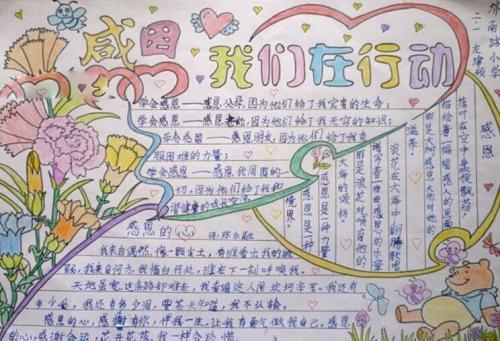 感恩
我们在行动
学会感恩——感恩父母,因为他们给了我宝贵的生命;
学会感恩——感恩老师,因为他们给了我无穷的知识;
学会感恩——感恩朋友,因为他们给了我克
服困难的力量;
学会感恩——感恩我周围的一
切,因为他们给了我和
谐健康的成长空间
感恩
落叶在空中盘旋,飘荡
那是大树感恩大地
浪花在大海中翻腾
那是浪花
大海的颂扬
感恩是一种
境界!
感恩的心
我来自偶然,像一颗尘土,有谁看出我的脆
弱,我来自何方,我情归何处,谁在下一刻呼唤我。
天地虽宽,这条路却难走,我看遍这人间坎坷辛苦。我还有
多少爱,我还有多少泪,要苍天知道,我不认输。
感恩的心,感谢有你,伴我一生,让我有勇气做我自己,感恩
的心,感谢命运,花开花落,我一样会珍惜